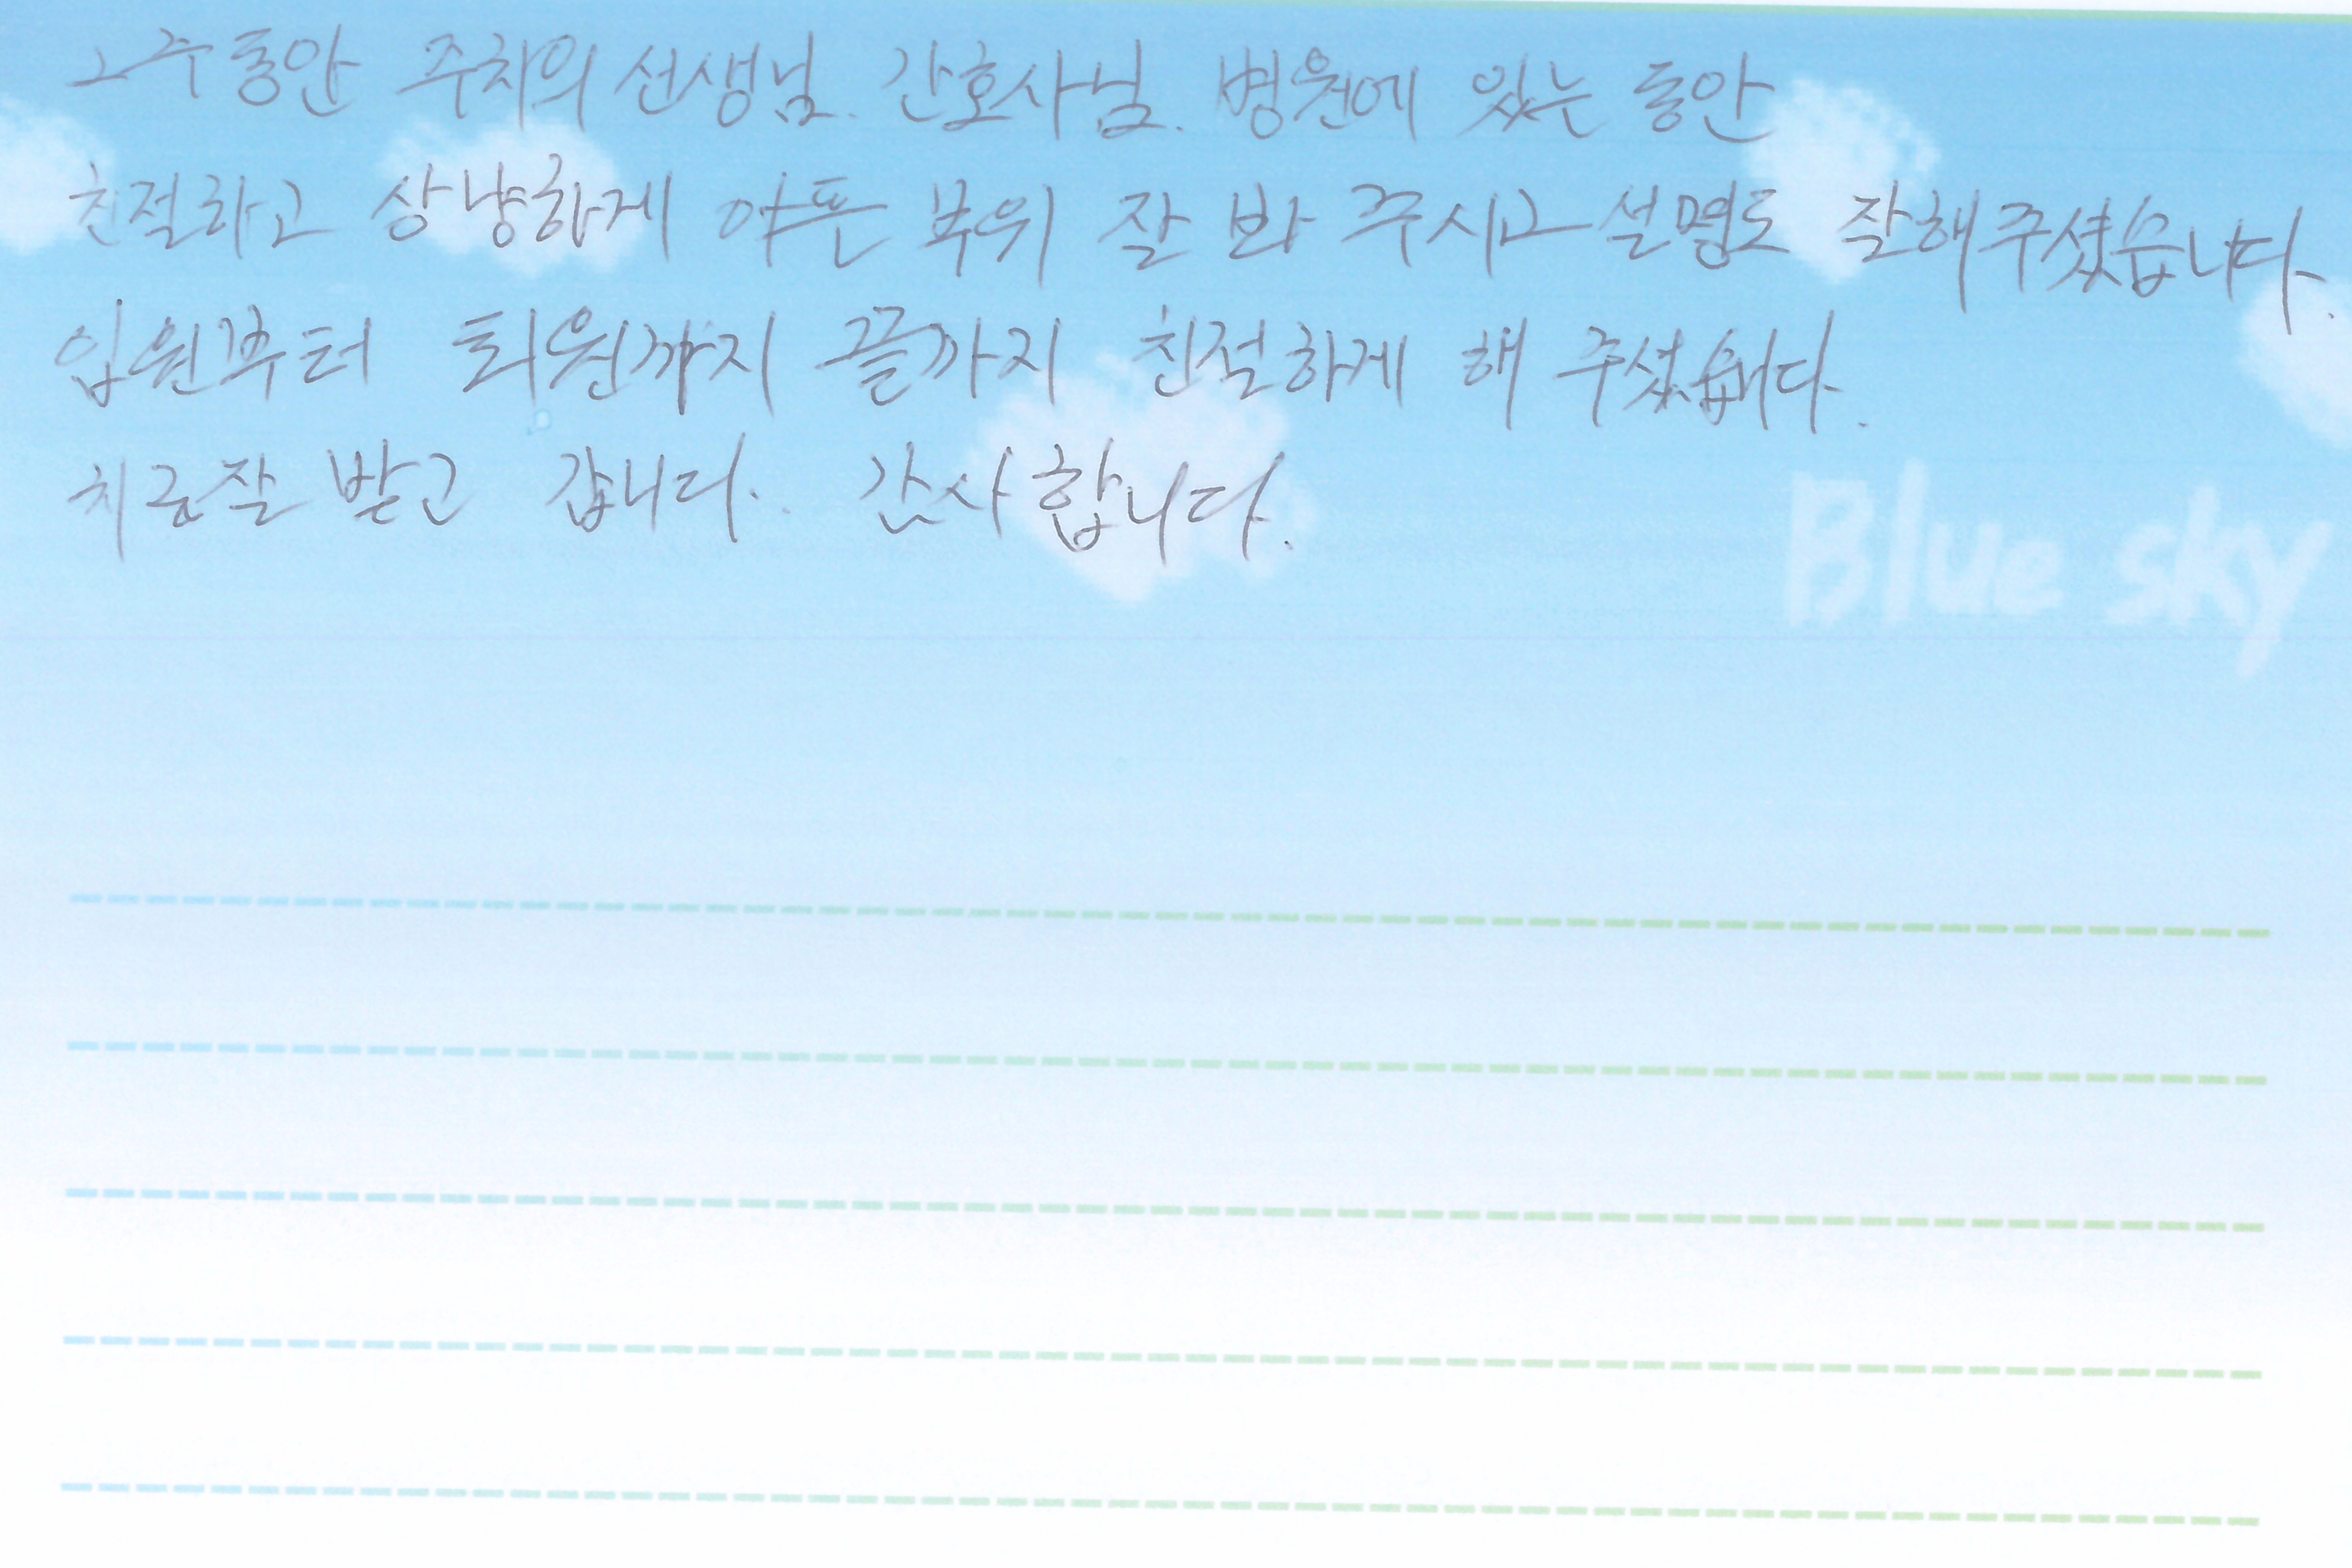 2주동안 주치의 선생님. 간호사님. 병원에 있는 동안
친절하고 상냥하게 아픈 부위 잘 봐 주시고 설명도 잘해주셨습니다.
입원부터 퇴원까지 끝까지 친절하게 해 주셨습니다.
치료잘 받고 갑니다. 감사합니다.
Blue sky